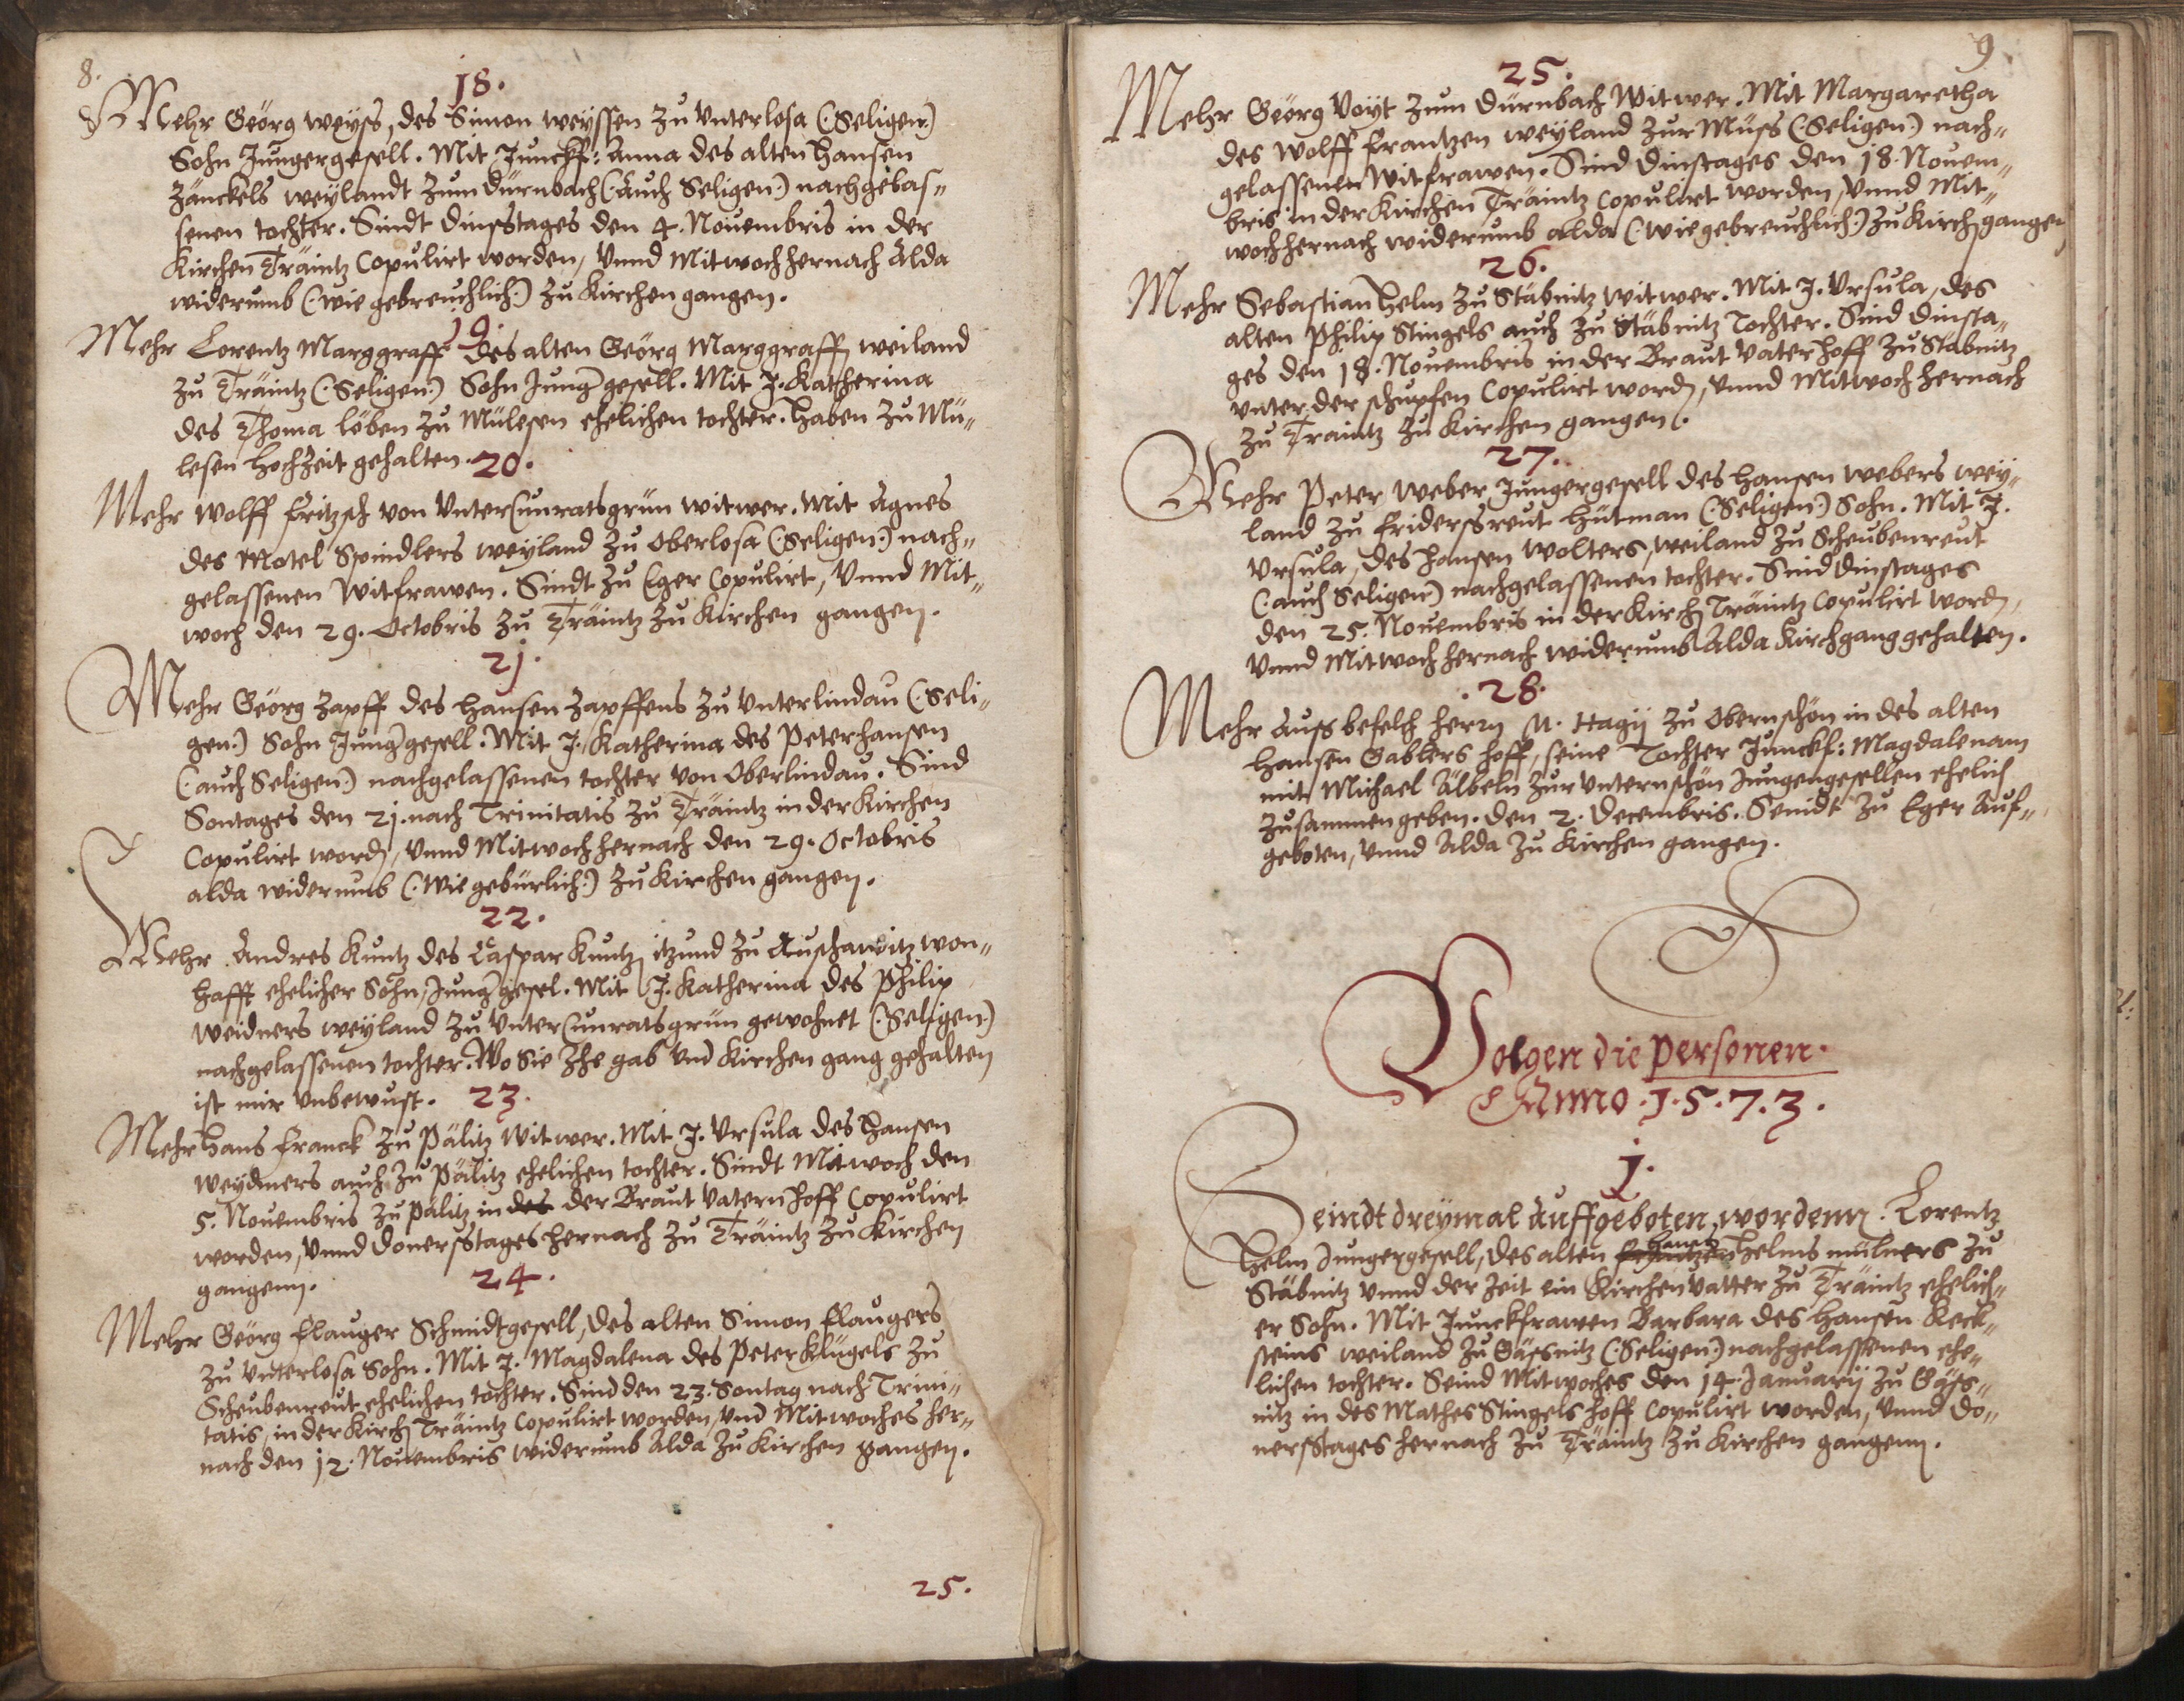 8.
18.
Mehr Georg weyss, des Simon weyssen zu Unterlosa (:Seligen:)
Sohn Jungergesell. Mit Junckf: Anna des alten Hansen
Zänckels weylandt zum Dürnbach (:Auch Seligen:) nachgelas„
senen tochter. Sindt Dinstages den 4. Nouembris in der
Kirchen Träintz Copulirt worden, Unnd Mitwoch hernach Alda
widerumb (:wie gebreuchlich:) zu Kirchen gangen.
19.
Mehr Lorentz Marggraff des alten Georg Marggraffen weiland
zu Träintz (:Seligen:) Sohn Jung gesell. Mit J. Katherina
des Thoma löben zu Mülesen ehelichen tochter. Haben zu Mü„
lesen Hochzeit gehalten.
20.
Mehr Wolff Fritzsch von Untercunratsgrün witwer. Mit Agnes
des Motel Spindlers weyland zu Oberlosa (:Seligen:) nach„
gelassenen Witfrawen. Sindt zu Eger Copulirt, Unnd Mit„
woch den 29. Octobris zu Träintz zu Kirchen gangen.
21.
Mehr Georg Zapff des Hansen Zapffens zu Unterlindau (:Seli„
gen:) Sohn Jung gesell. Mit J. Katherina des Peterhansen
(:auch Seligen:) nachgelassenen tochter von Oberlindau. Sind
Sontages den 21. nach Trinitatis zu Träintz in der Kirchen
Copulirt worden, Unnd Mitwoch hernach den 29. Octobris
alda widerumb (:Wie gebürlich:) zu Kirchen gangen.
22.
Mehr Andres Kuntz des Caspar Kuntzen itzund zu Auschawitz won„
hafft ehelicher Sohn, Jung gesel. Mit J. Katherina des Philip
Weidners weyland zu Untercunratsgrün gewohnet (:Seligen:)
nachgelassenen tochter. Wo Sie Ehe gab Und Kirchen gang gehalten
ist mir Unbewust.
23.
Mehr Hans Franck zu Pälitz Witwer. Mit J. Ursula des Hansen
Weydners auch zu Pälitz ehelichen tochter. Sindt Mitwoch den
5. Nouembris zu Pälitz in des der Braut Vatern Hoff Copulirt
worden, Unnd Donerstages hernach zu Träintz zu Kirchen
gangenn.
24.
Mehr Georg Flauger Schmidtgesell, des alten Simon Flaugers
zu Unterlosa Sohn. Mit J. Magdalena des Peter Klügels zu
Scheubenreut ehelichen tochter. Sind den 23. Sontag nach Trini„
tatis, in der Kirchen Träintz Copulirt worden, Und Mitwoches her„
nach den 12. Nouembris widerumb Alda zu Kirchen gangen.
25.
9.
25.
Mehr Georg Voyt zum Dürnbach Witwer. Mit Margaretha
des Wolff Frantzen weyland zur Müss (:Seligen:) nach„
gelassenen Witfrawen. Sind Dinstages den 18. Nouem„
bris in der Kirchen Träintz Copulirt worden, Unnd Mit„
woch hernach widerumb alda (:wie gebreuchlich:) zu Kirch gangen
26.
Mehr Sebastian Helm zu Stäbnitz Witwer. Mit J. Ursula, des
alten Philip Stingels auch zu Stäbnitz Tochter. Sind Dinsta„
ges den 18. Nouembris in der Braut Vater Hoff zu Stäbnitz
unter der schupfen Copulirt worden, Unnd Mitwoch hernach
zu Traintz zu Kirchen gangen.
27.
Mehr Peter Weber Jungergesell des Hansen Webers wey„
land zu Fridersreut Hütman (:Seligen:) Sohn. Mit J.
Ursula, des Hansen Wolters, weiland zu Scheubenreut
(:auch Seligen:) nachgelassenen tochter. Sind Dinstages
den 25. Nouembris in der Kirchen Träintz Copulirt worden,
Unnd Mitwoch hernach widerumb Alda Kirchgang gehalten.
28.
Mehr Auss befelch Herrn M. Hagij zu Obernschön in des alten
Hansen Gablers Hoff, seine Tochter Junckf: Magdalenam
mit Michael Albeln zur Unternschön Jungengesellen ehelich
zusammen geben. den 2. Decembris. Seindt zu Eger Auf„
geboten, Unnd Alda zu Kirchen gangen.
Volgen die Personen.
Anno .1.5.7.3.
1.
Seindt dreymal Auffgeboten wordenn. Lorentz
Helm Jungergesell, des alten Hansen Helms mülners zu
Stäbnitz Unnd der Zeit ein Kirchen Vatter zu Träintz ehelich„
er Sohn. Mit Junckfrawen Barbara des Hansen Keck„
steins weiland zu Gäsnitz (:Seligen:) nachgelassenen ehe„
lichen tochter. Seind Mitwoches den 14. Januarij zu Gäs„
nitz in des Mathes Stingels Hoff Copulirt worden, Unnd Do„
nerstages hernach zu Träintz zu Kirchen gangenn.